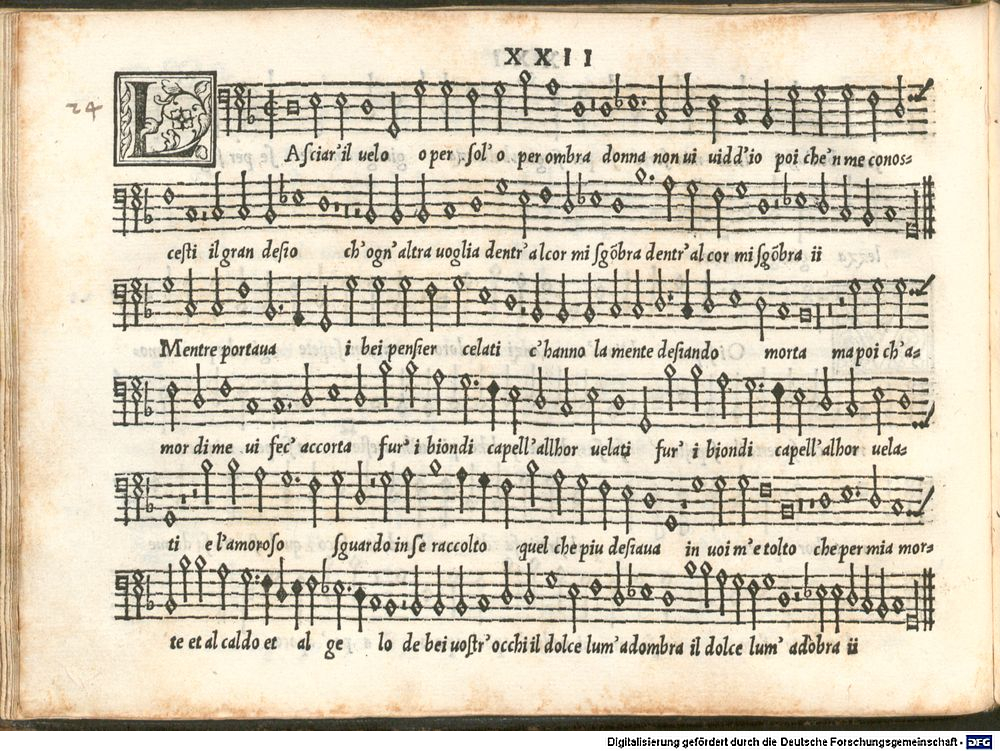 XXII
24
LAsciar'il uelo o per sol' o per ombra donna non ui uidd'io poi che'n me conos=
cesti il gran desio ch'ogn'altra uoglia dentr'al cor mi sgōbra dentr'al cor mi sgōbra ii
Mentre portaua i bei pensier celati c'hanno la mente desiando morta ma poi ch'a=
mor di me ui fec'accorta fur'i biondi capell'allhor uelati fur'i biondi capell'alhor uela=
ti e l'amoroso sguardo in se raccolto quel che piu desiaua in uoi m'e tolto che per mia mor=
te et al caldo et al gelo de bei uostr'occhi il dolce lum'adombra il dolce lum'adōbra ii
Digitalisierung gefördert durch die Deutsche Forschungsgemeinschaft - DFG